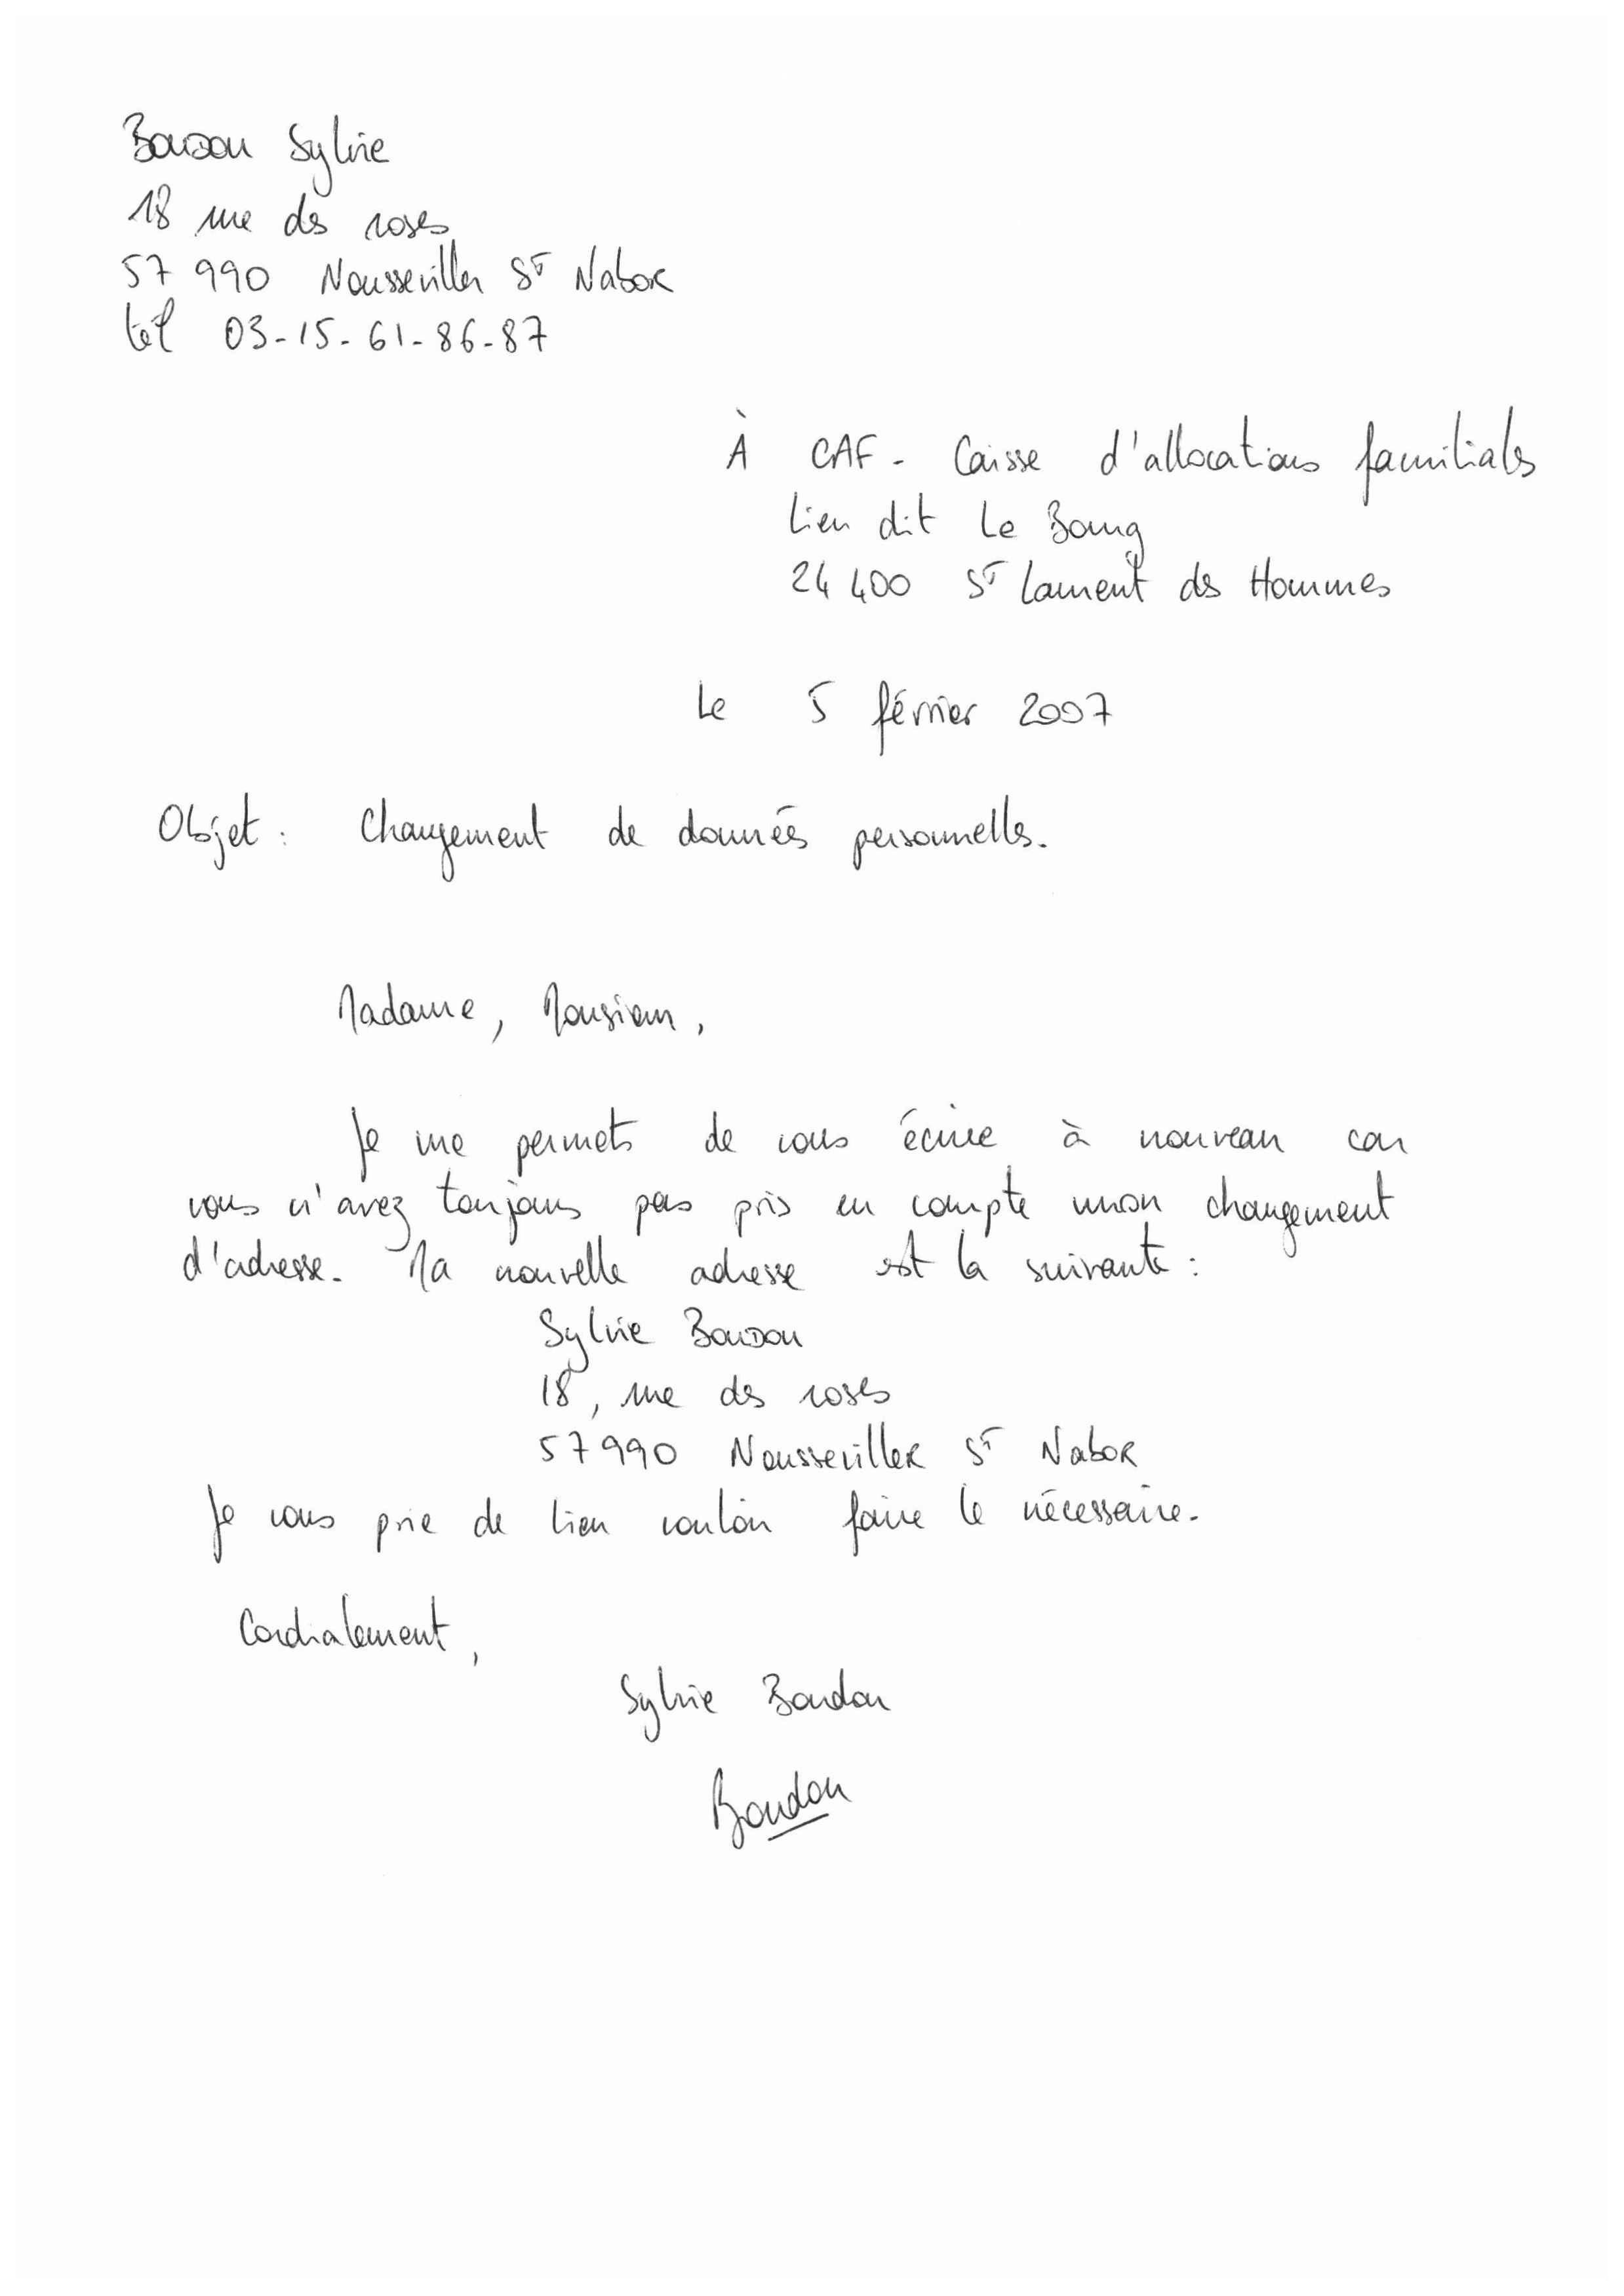 Boudou Sylvie
18 rue des roses
57 990 Nousseviller St Nabor
tél 03-15-61-86-87
À CAF - Caisse d'allocations familiales
Lieu dit Le Bourg
24 400 St Laurent des Hommes
Le 5 février 2007
Objet : Changement de données personnelles.
Madame, Monsieur,
Je me permets de vous écrire à nouveau car
vous n'avez toujours pas pris en compte mon changement
d'adresse. Ma nouvelle adresse est la suivante :
Sylvie Boudou
18, rue des roses
57990 Nousseviller St Nabor
Je vous prie de bien vouloir faire le nécessaire.
Cordialement,
Sylvie Boudou
Boudou